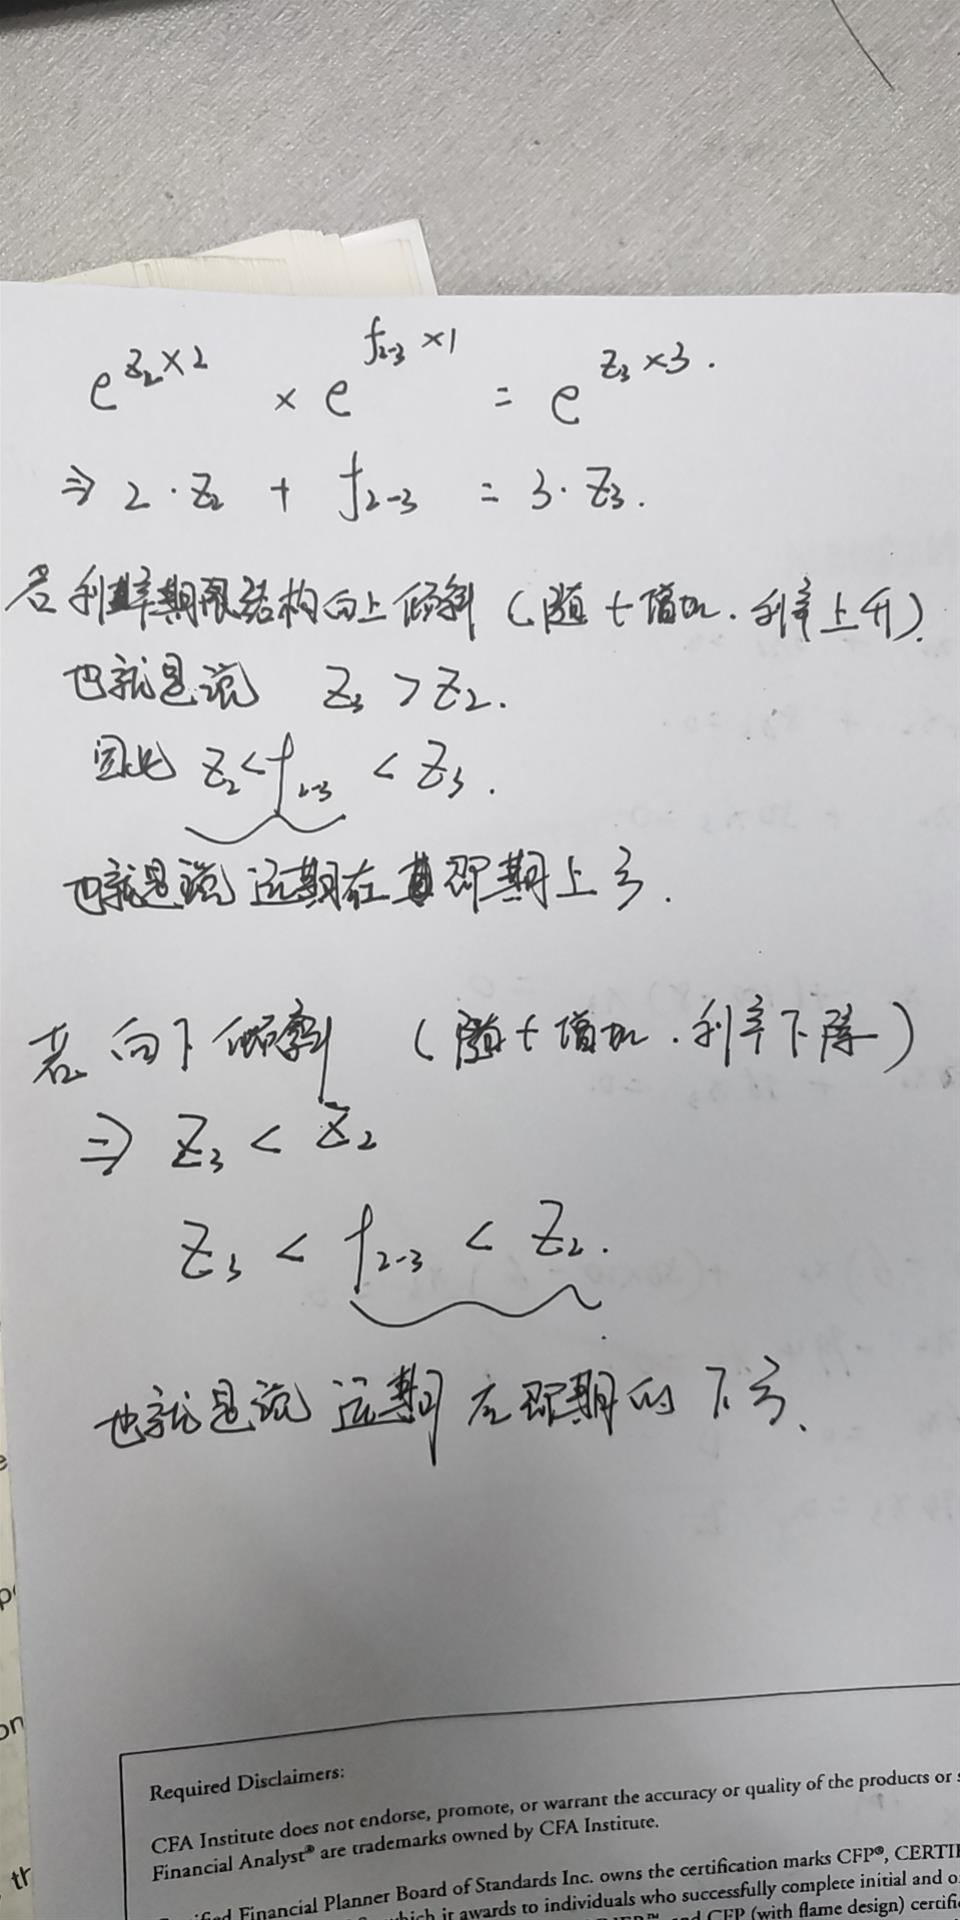 e^{z₂×2} × e^{f₂₋₃×1} = e^{z₃×3}.
⇒ 2·z₂ + f₂₋₃ = 3·z₃.
若利率期限结构向上倾斜（随t增加.利率上升）.
也就是说 z₃ > z₂.
因此 z₂ < f₂₋₃ < z₃.
也就是说 远期在即期上方.
若向下倾斜 （随t增加.利率下降）
⇒ z₃ < z₂
z₃ < f₂₋₃ < z₂.
也就是说 远期在即期的下方.
Required Disclaimers:
CFA Institute does not endorse, promote, or warrant the accuracy or quality of the products or
Financial Analyst® are trademarks owned by CFA Institute.
Financial Planner Board of Standards Inc. owns the certification marks CFP®,
which it awards to individuals who successfully complete initial and
CFP (with flame design)